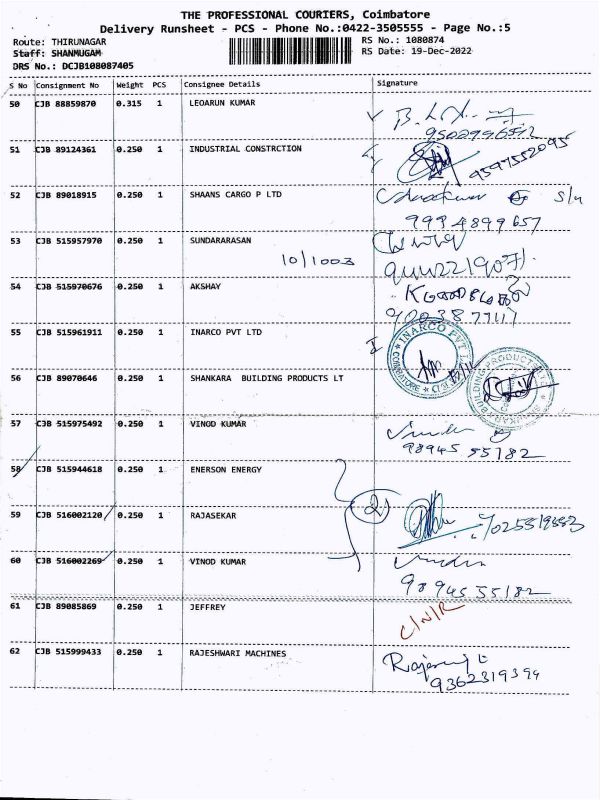 THE PROFESSIONAL COURIERS, Coimbatore
Delivery Runsheet - PCS - Phone No.:0422-3505555 - Page No.:5
Route: THIRUNAGAR RS No.: 1080874
Staff: SHANMUGAM RS Date: 19-Dec-2022
DRS No.: DCJB108087405
S No Consignment No Weight PCS Consignee Details Signature
50 CJB 88859870 0.315 1 LEOARUN KUMAR
51 CJB 89124361 0.250 1 INDUSTRIAL CONSTRCTION
9597552095
52 CJB 89018915 0.250 1 SHAANS CARGO P LTD
9994899657
53 CJB 515957970 0.250 1 SUNDARARASAN
10/1003
54 CJB 515970676 0.250 1 AKSHAY
55 CJB 515961911 0.250 1 INARCO PVT LTD
INARCO PVT LTD
COIMBATORE
56 CJB 89070646 0.250 1 SHANKARA BUILDING PRODUCTS LT
BUILDING PRODUCTS
57 CJB 515975492 0.250 1 VINOD KUMAR
98945 55182
58 CJB 515944618 0.250 1 ENERSON ENERGY
2
59 CJB 516002120 0.250 1 RAJASEKAR
60 CJB 516002269 0.250 1 VINOD KUMAR
98945 55182
61 CJB 89085869 0.250 1 JEFFREY
C/N/R
62 CJB 515999433 0.250 1 RAJESHWARI MACHINES
9362319394